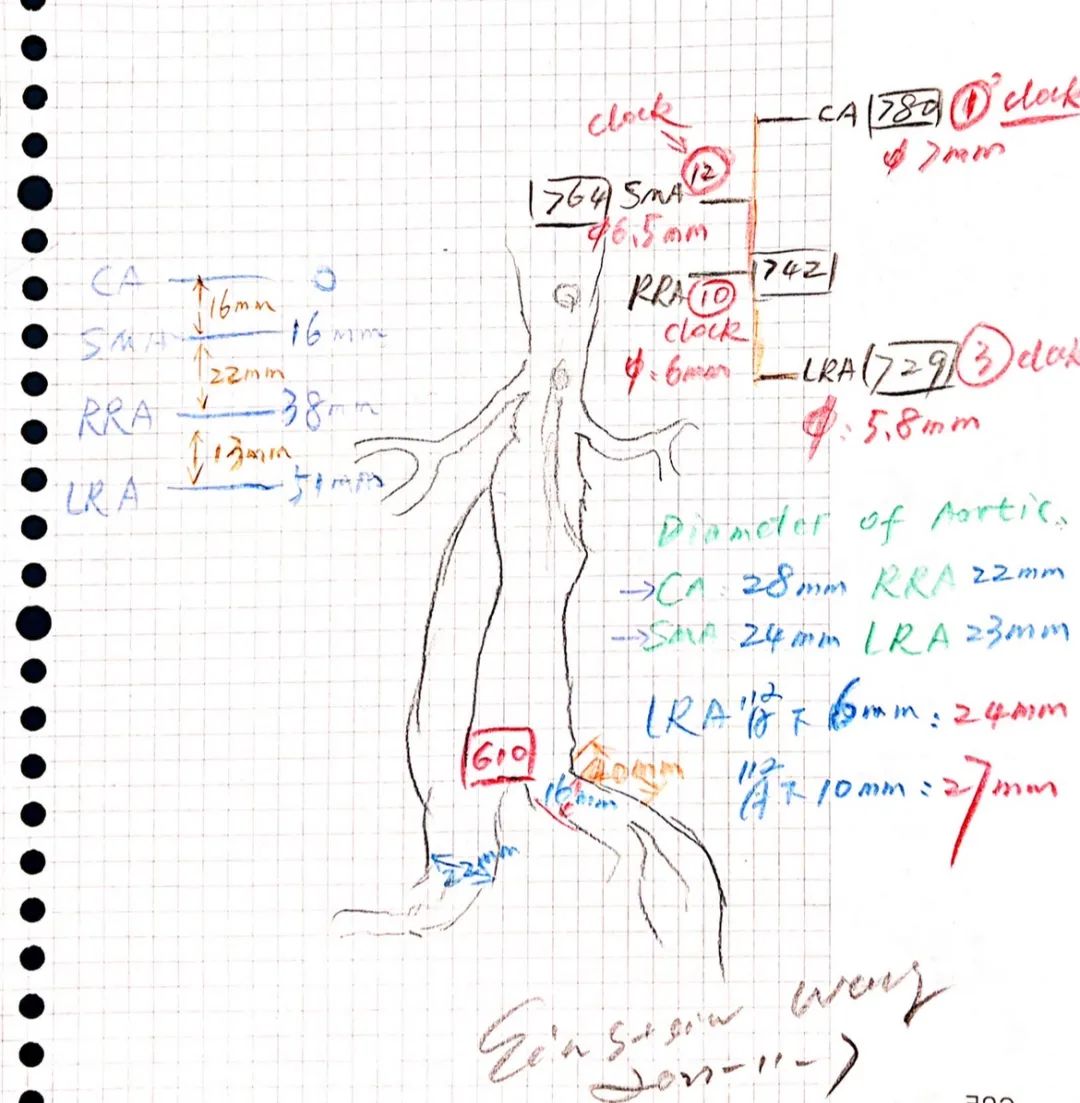 CA 780 1 clock
φ 7mm
clock
12
764 SMA
φ6.5mm
742
RRA 10
clock
φ: 6mm
LRA 729 3 clock
φ: 5.8mm
CA 0
16mm
SMA 16mm
22mm
RRA 38mm
13mm
LRA 51mm
Diameter of Aortic.
→CA: 28mm RRA 22mm
→SMA 24mm LRA 23mm
LRA 下 6mm: 24mm
下 10mm: 27mm
610
40mm
16mm
22mm